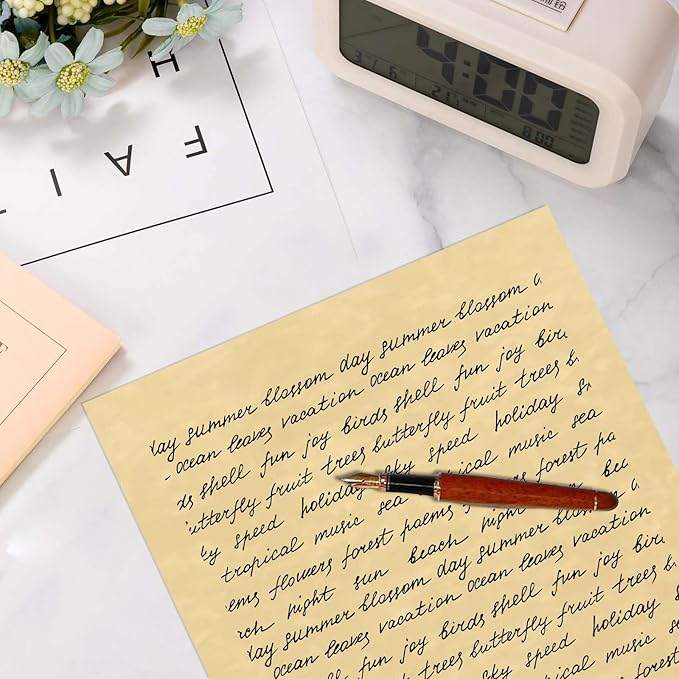 FAITH
4:00
3/ 6
8:00
day summer blossom day summer blossom
ocean leaves vacation ocean leaves vacation
ds shell fun joy birds shell fun joy bir
utterfly fruit trees butterfly fruit trees b
ky speed holiday sky speed holiday s
tropical music sea tropical music sea
ems flowers forest poems flowers forest po
ch night sun beach night sun bec
day summer blossom day summer blossom
ocean leaves vacation ocean leaves vacation
fun joy birds shell fun joy bir
trees butterfly fruit trees b
sky speed holiday s
tropical music sea
forest